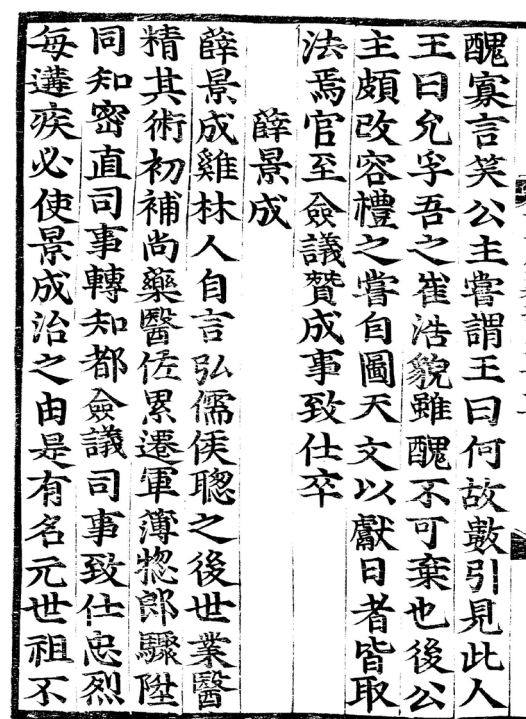 醜寡言笑公主嘗謂王曰何故數引見此人
王曰允孚吾之崔浩貌雖醜不可棄也後公
主頗改容禮之嘗自圖天文以獻日者皆取
法焉官至僉議贊成事致仕卒
薛景成
薛景成雞林人自言弘儒侯聰之後世業醫
精其術初補尚藥醫佐累遷軍簿揔郎驟陞
同知密直司事轉知都僉議司事致仕忠烈
每遘疾必使景成治之由是有名元世祖不